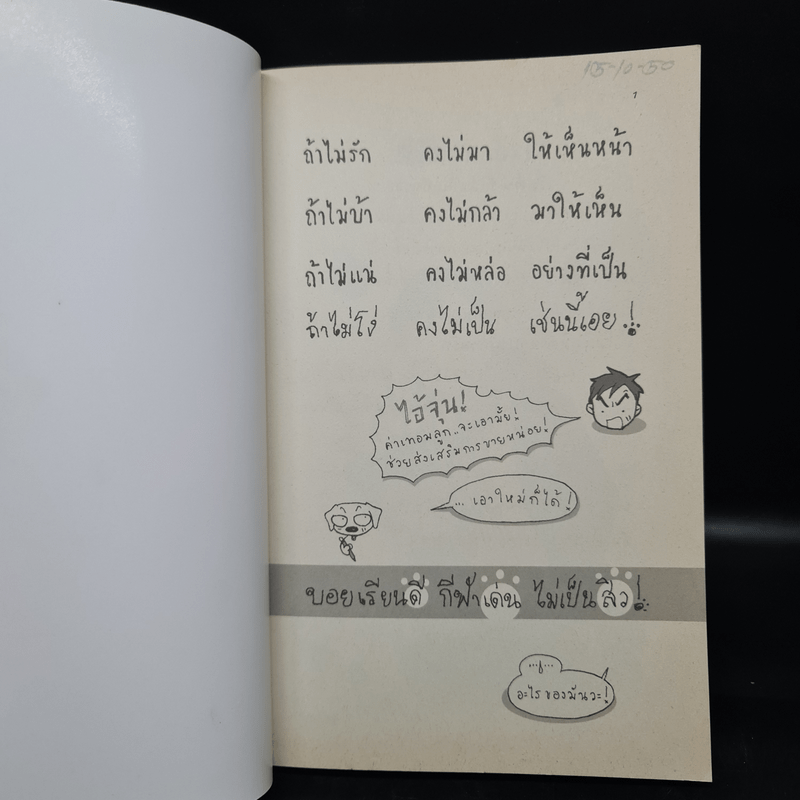 15-10-50
1
ถ้าไม่รัก คงไม่มา ให้เห็นหน้า
ถ้าไม่บ้า คงไม่กล้า มาให้เห็น
ถ้าไม่แน่ คงไม่หล่อ อย่างที่เป็น
ถ้าไม่โง่ คงไม่เป็น เช่นนี้เอย!
ไอ้จุ่น!
ค่าเทอมลูก..จะเอามั้ย!
ช่วยส่งเสริมการขายหน่อย!
...เอาใหม่ก็ได้!
บอยเรียนดี กีฬาเด่น ไม่เป็นสิว!
อะไรของมันวะ!